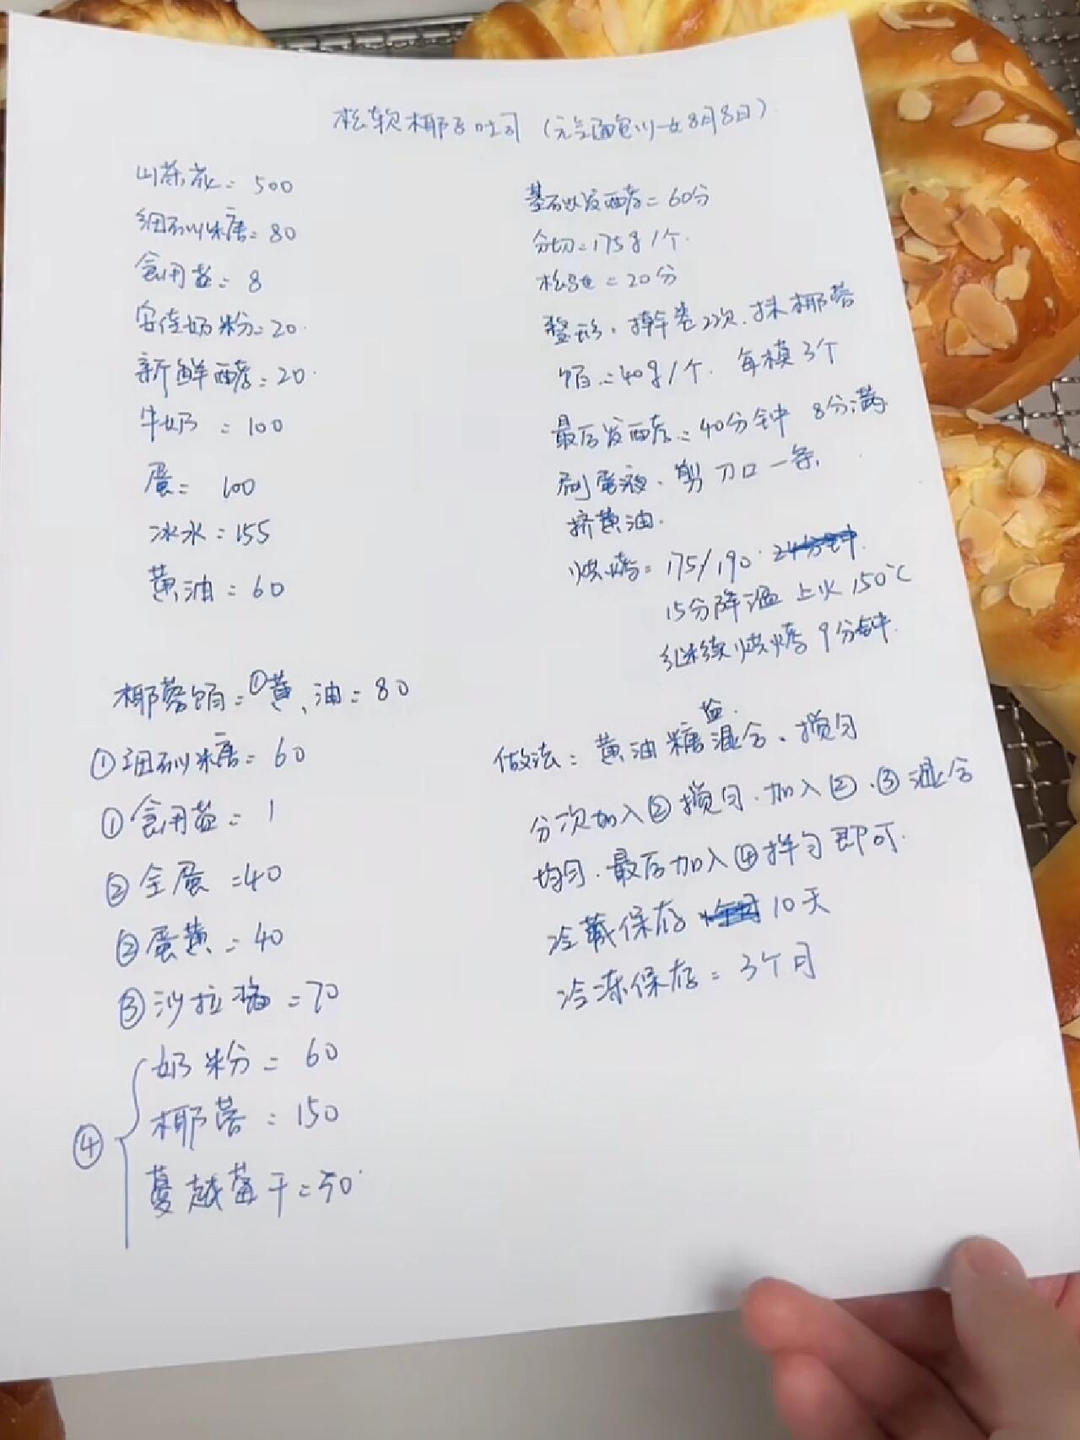 松软椰子吐司（元兰面包川一女8月8日）
山茶花：500
细砂糖：80
食用盐：8
安佳奶粉：20
新鲜酵：20
牛奶：100
蛋：100
冰水：155
黄油：60
基础发酵：60分
分切：175g/个
松弛：20分
整形、擀卷2次、抹椰蓉
馅：40g/个 每模3个
最后发酵：40分钟 8分满
刷蛋液、剪刀口一条，
挤黄油.
烘烤：175/190. 24分钟
15分降温 上火150℃
继续烘烤9分钟.
椰蓉馅：①黄油：80
①细砂糖：60
①食用盐：1
②全蛋：40
②蛋黄：40
③沙拉酱：70
④
奶粉：60
椰蓉：150
蔓越莓干：50
做法：黄油糖盐混合、搅匀
分次加入②搅匀.加入②.③混合
均匀.最后加入④拌匀即可.
冷藏保存 10天
冷冻保存：3个月